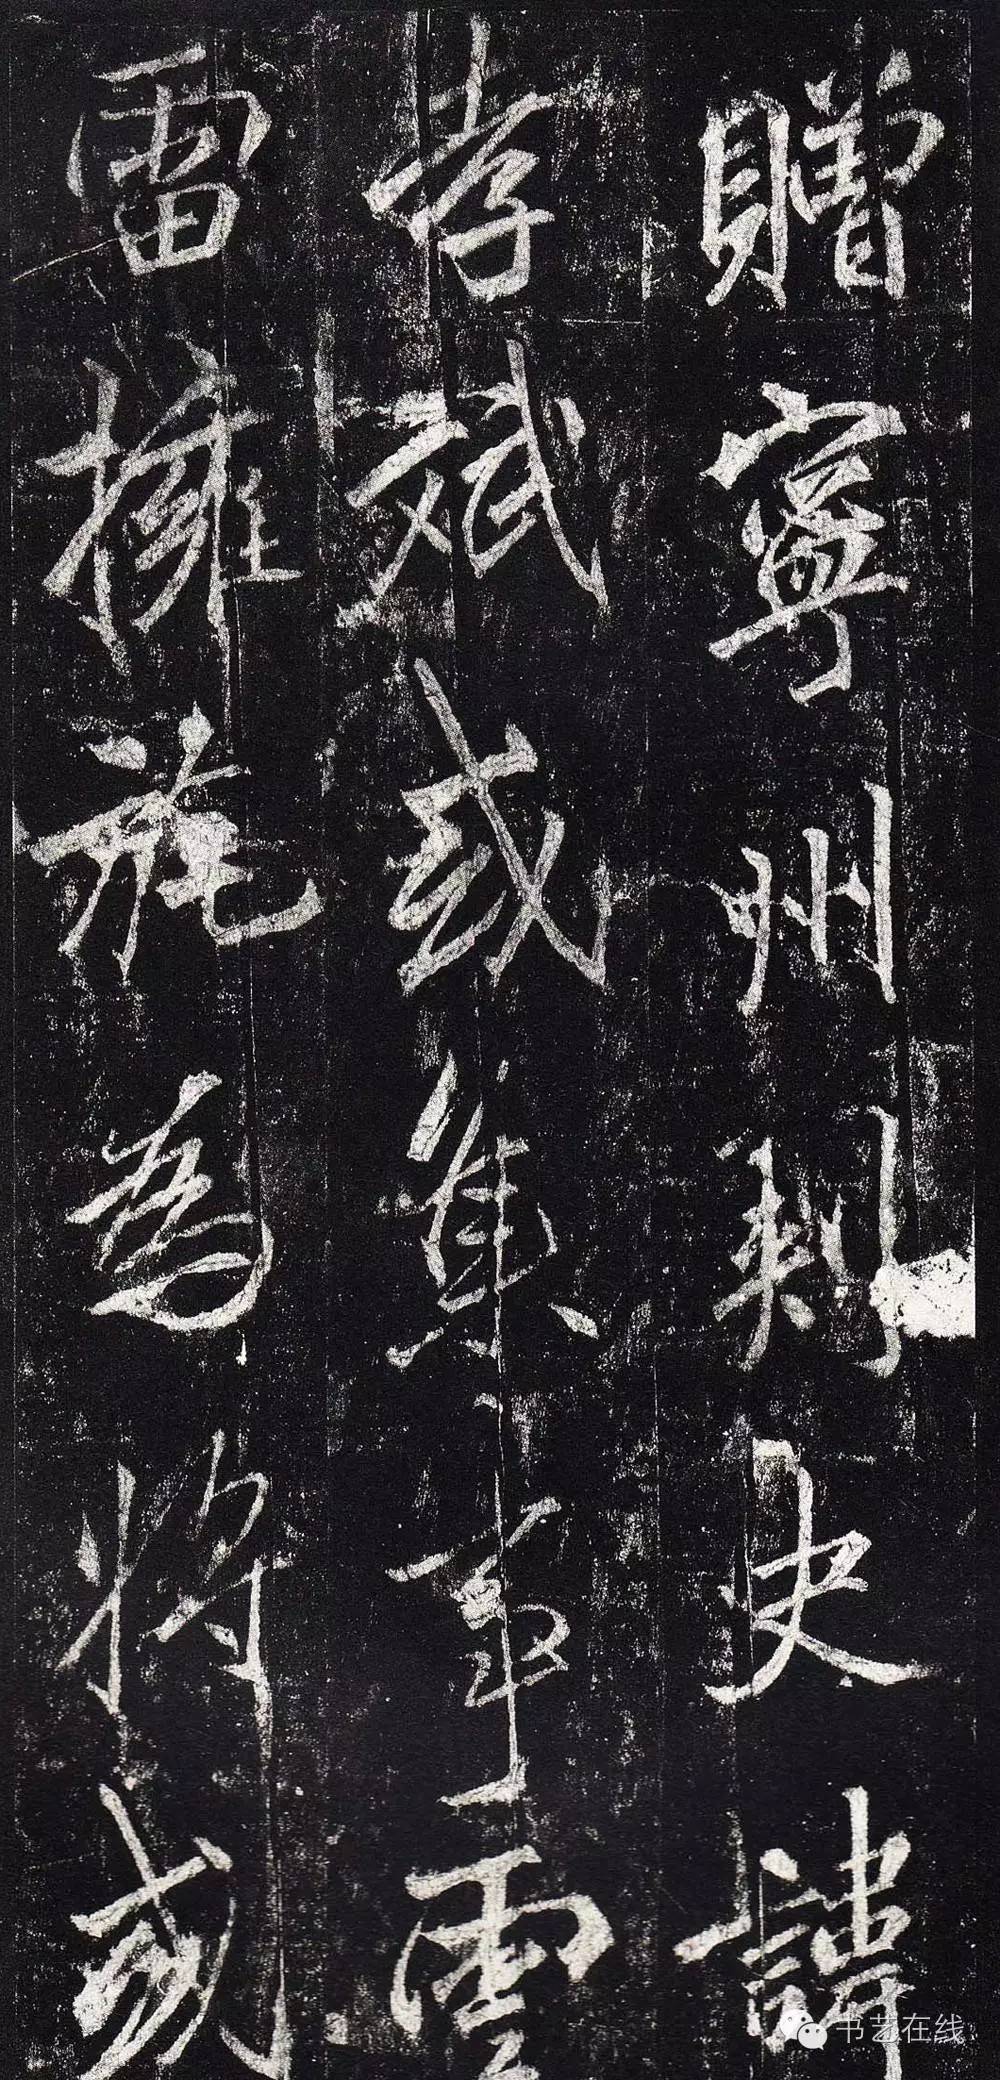 贈寧州刺史諱
孝斌或集事雲
雷擁旄為將或
书艺在线